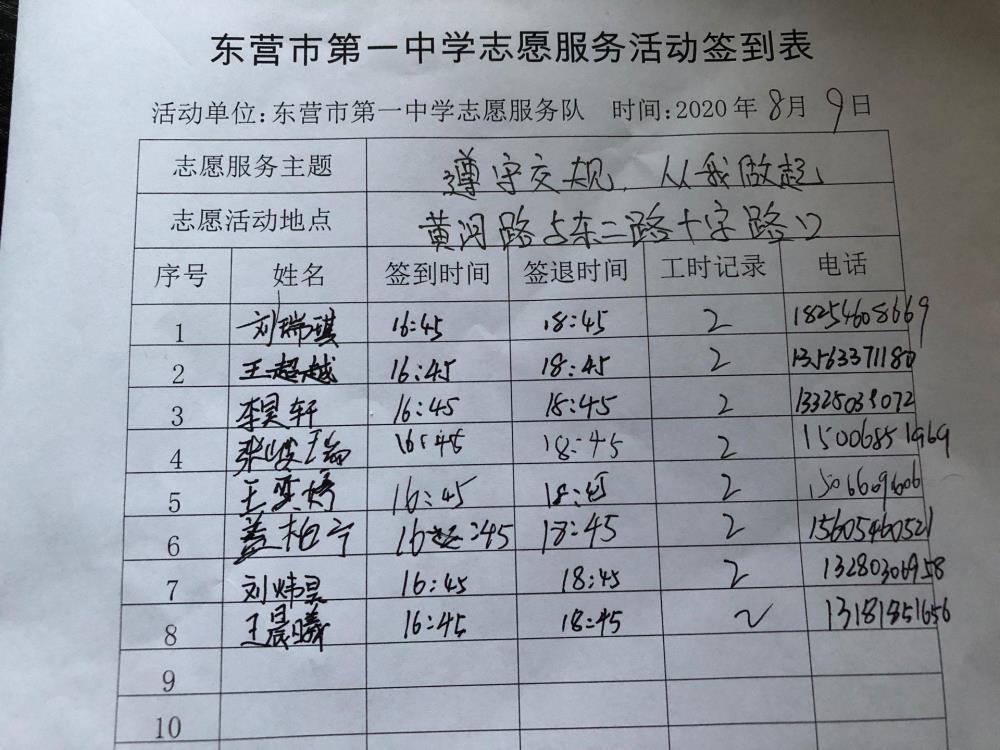 东营市第一中学志愿服务活动签到表
活动单位:东营市第一中学志愿服务队 时间:2020年8月9日
志愿服务主题 遵守交规,从我做起
志愿活动地点 黄河路与东二路十字路口
序号 姓名 签到时间 签退时间 工时记录 电话
1 刘瑞琪 16:45 18:45 2 18254608669
2 王超越 16:45 18:45 2 13563371180
3 李昊轩 16:45 18:45 2
4 16:45 18:45 2 15006851969
5 16:45 18:45 2
6 盖柏宁 16:45 18:45 2 15605460521
7 刘炜昊 16:45 18:45 2 13280306958
8 王晨曦 16:45 18:45 2 13181851656
9
10